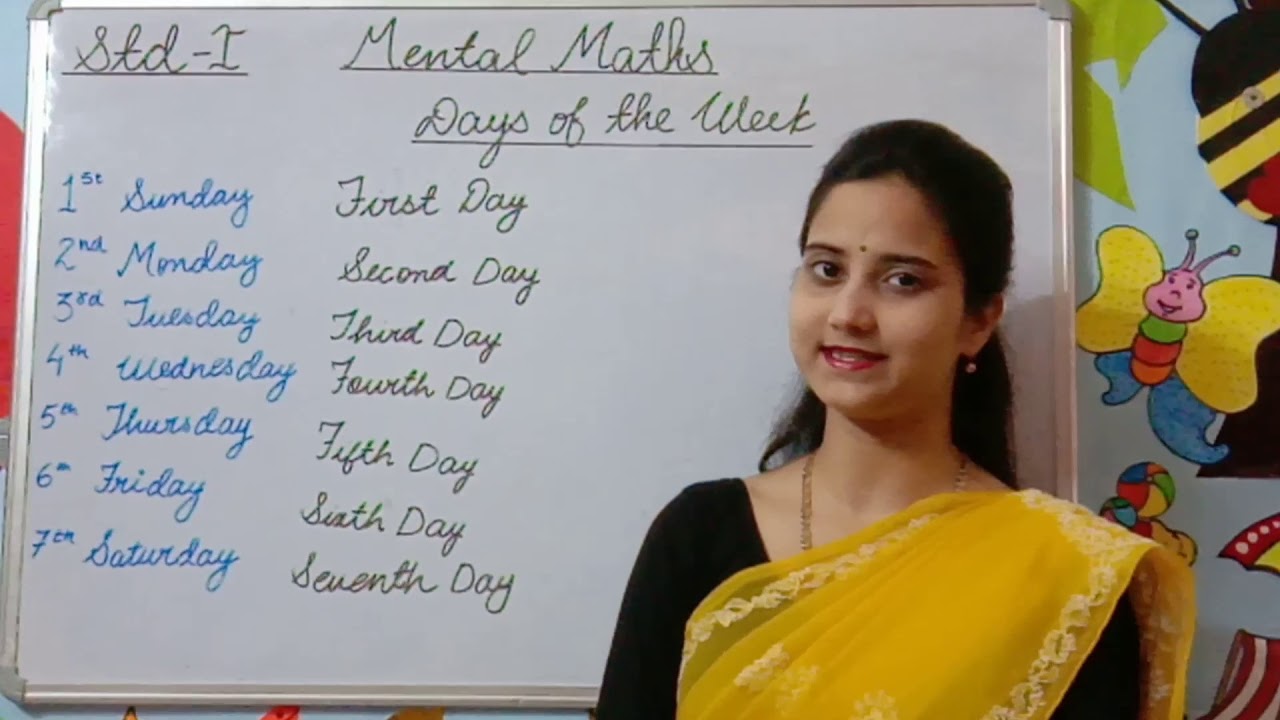 Std-I Mental Maths
Days of the Week
1st Sunday First Day
2nd Monday Second Day
3rd Tuesday Third Day
4th Wednesday Fourth Day
5th Thursday Fifth Day
6th Friday Sixth Day
7th Saturday Seventh Day